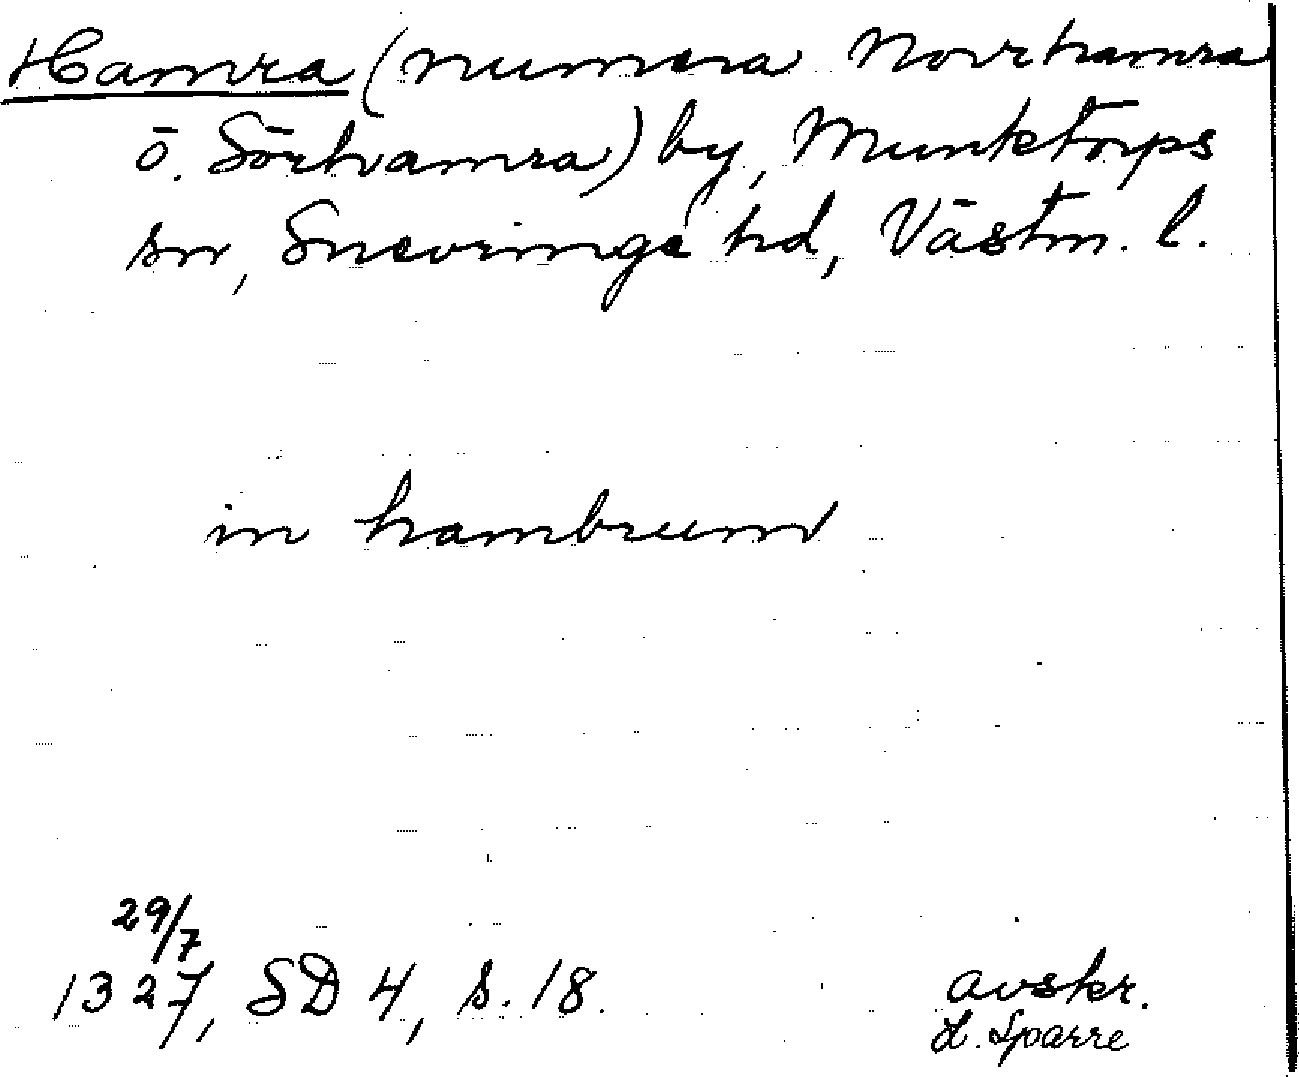 Hamra (numera Norrhamra
o. Sörhamra) by, Munktorps
sn, Snevringe hd, Västm. l.
in hambrum
29/7
1327, SD 4, s. 18.
avskr.
L. Sparre